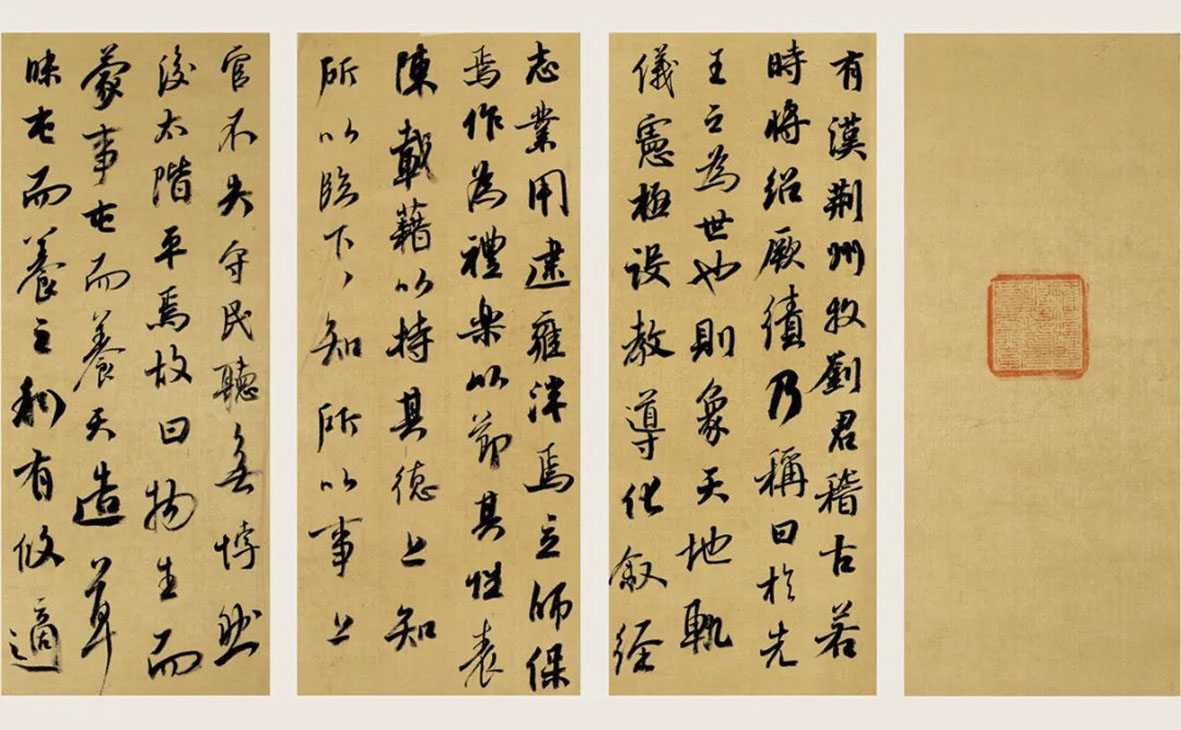 有漢荊州牧劉君稽古若
時將紹厥績乃稱曰於先
王之為世也則象天地軌
儀憲極設教導化敘經
志業用建雍泮焉立師保
焉作為禮樂以節其性表
陳載藉以持其德上知
所以臨下、知所以事上
官不失守民聽無悖然
後太階平焉故曰物生而
蒙事屯而養天造草
昧屯而養之利有攸適